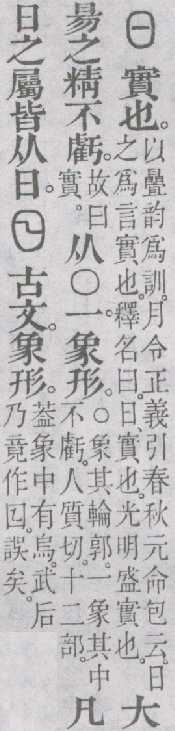 日 實也。以疊韵爲訓。月令正義引春秋元命包云。日之爲言實也。釋名曰。日、實也。光明盛實也。大
昜之精不虧。故曰實。从〇一。象形。〇象其輪郭。一象其中不虧。人質切。十二部。凡
日之屬皆从日。古文。象形。葢象中有烏。武后乃竟作𡆠。誤矣。